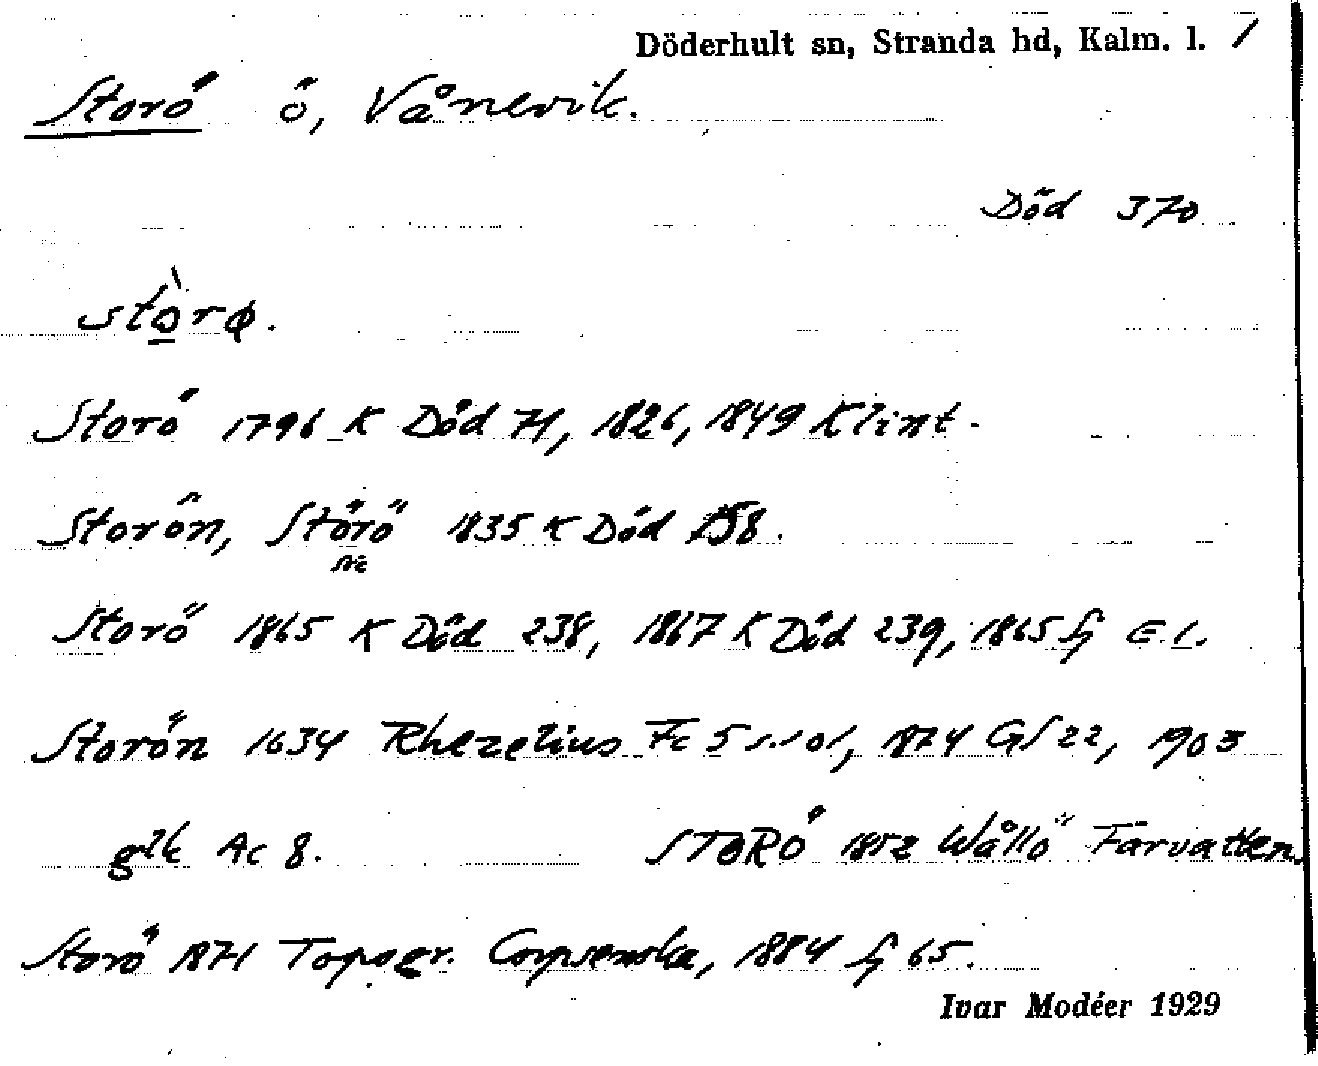 Döderhult sn, Stranda hd, Kalm. l. 1
Storö ö, Vånevik.
Död 370
stòrø.
Storö 1796 K Död 71, 1826, 1849 Klint.
Storön, Störö 1835 K Död 158.
sic
Storö 1865 K Död 238, 1867 K Död 239, 1865 fj E.L.
Storön 1634 Rhezelius Fc 5 s. 101, 1874 GS 22, 1903
glk Ac 8. STORÖ 1852 Wållö Farvatten,
Storö 1871 Topogr. Corpsenska, 1884 fj 65.
Ivar Modéer 1929